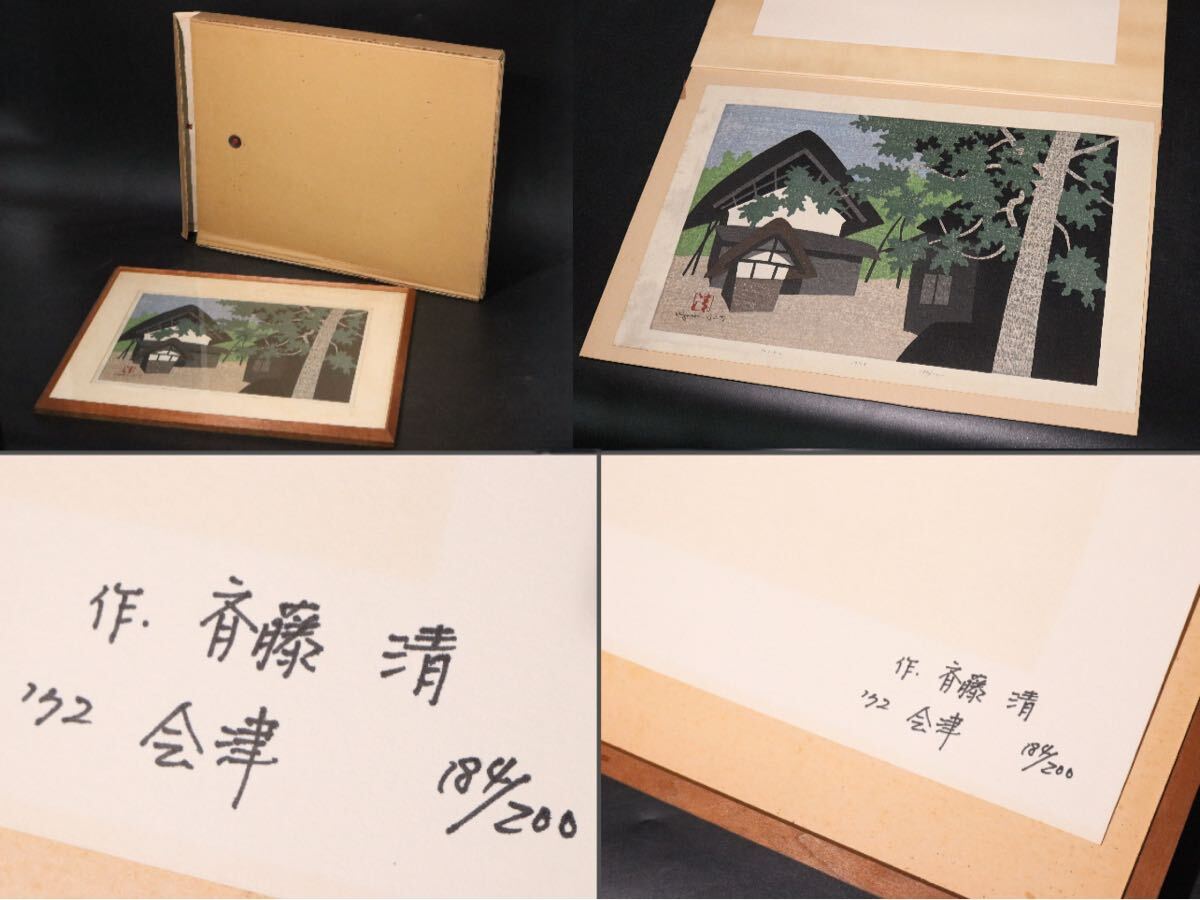 清
作. 斉藤 清
'72 会津
184/200
作. 斉藤 清
'72 会津
184/200